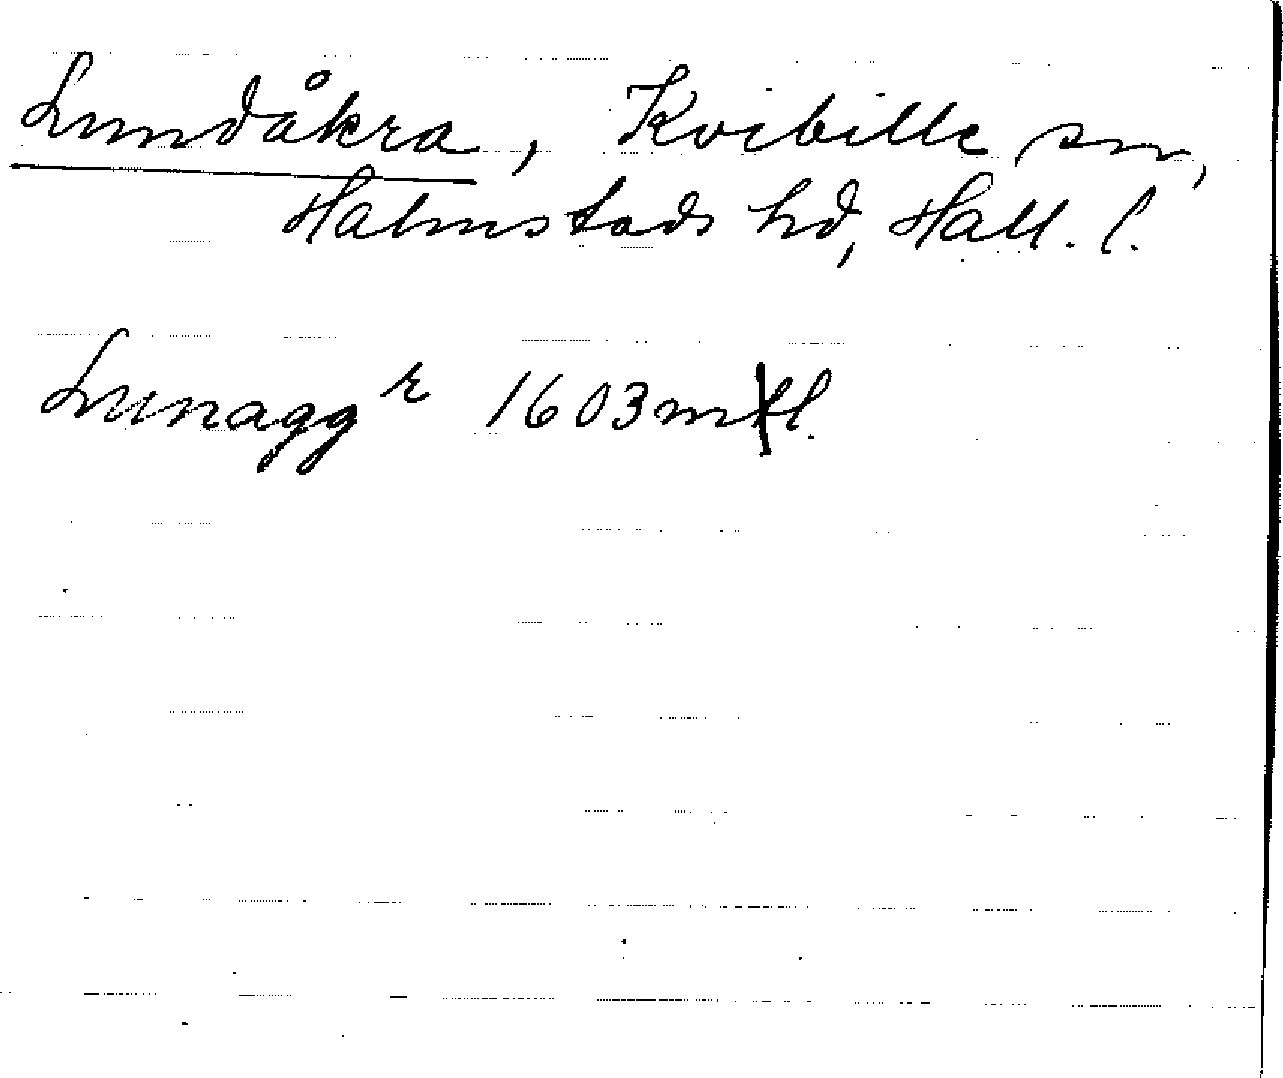 Lundåkra, Kvibille sn,
Halmstads hd, Hall. l.
Lunagg r 1603 mtl.